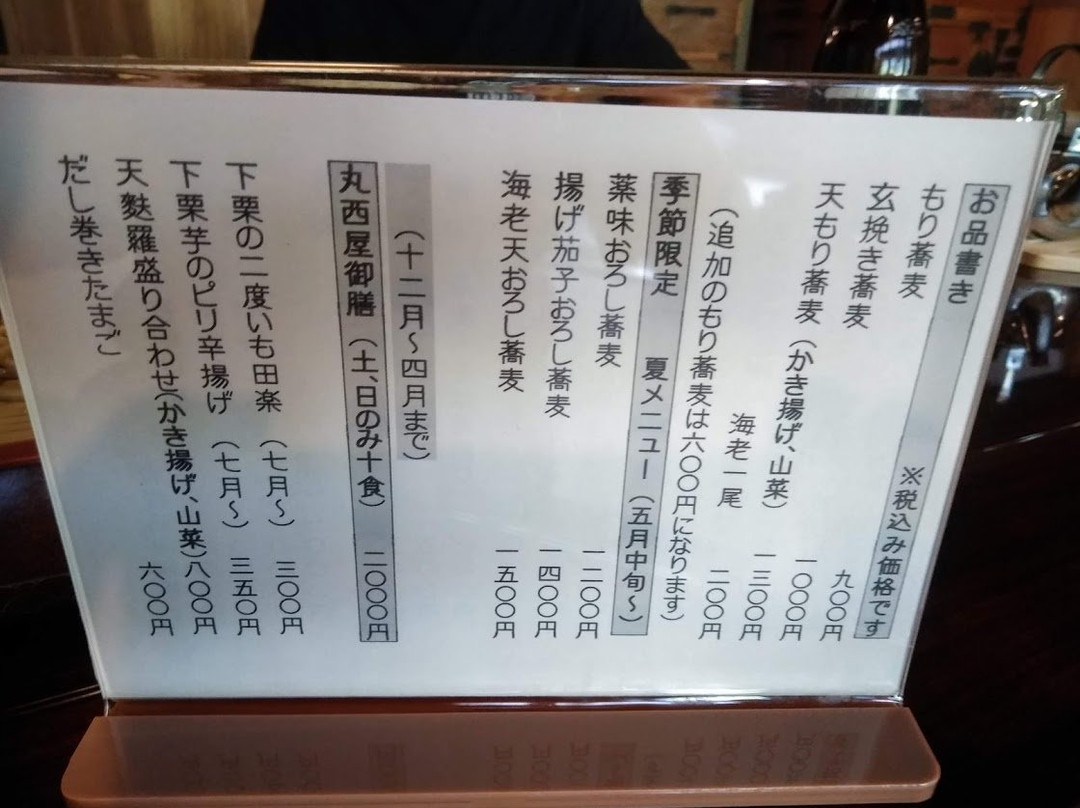 お品書き ※税込み価格です
もり蕎麦 九〇〇円
玄挽き蕎麦 一〇〇〇円
天もり蕎麦(かき揚げ、山菜) 一三〇〇円
海老一尾 二〇〇円
(追加のもり蕎麦は六〇〇円になります)
季節限定 夏メニュー(五月中旬~)
薬味おろし蕎麦 一二〇〇円
揚げ茄子おろし蕎麦 一四〇〇円
海老天おろし蕎麦 一五〇〇円
(十二月~四月まで)
丸西屋御膳(土、日のみ十食) 二〇〇〇円
下栗の二度いも田楽(七月~) 三〇〇円
下栗芋のピリ辛揚げ(七月~) 三五〇円
天麩羅盛り合わせ(かき揚げ、山菜)八〇〇円
だし巻きたまご 六〇〇円